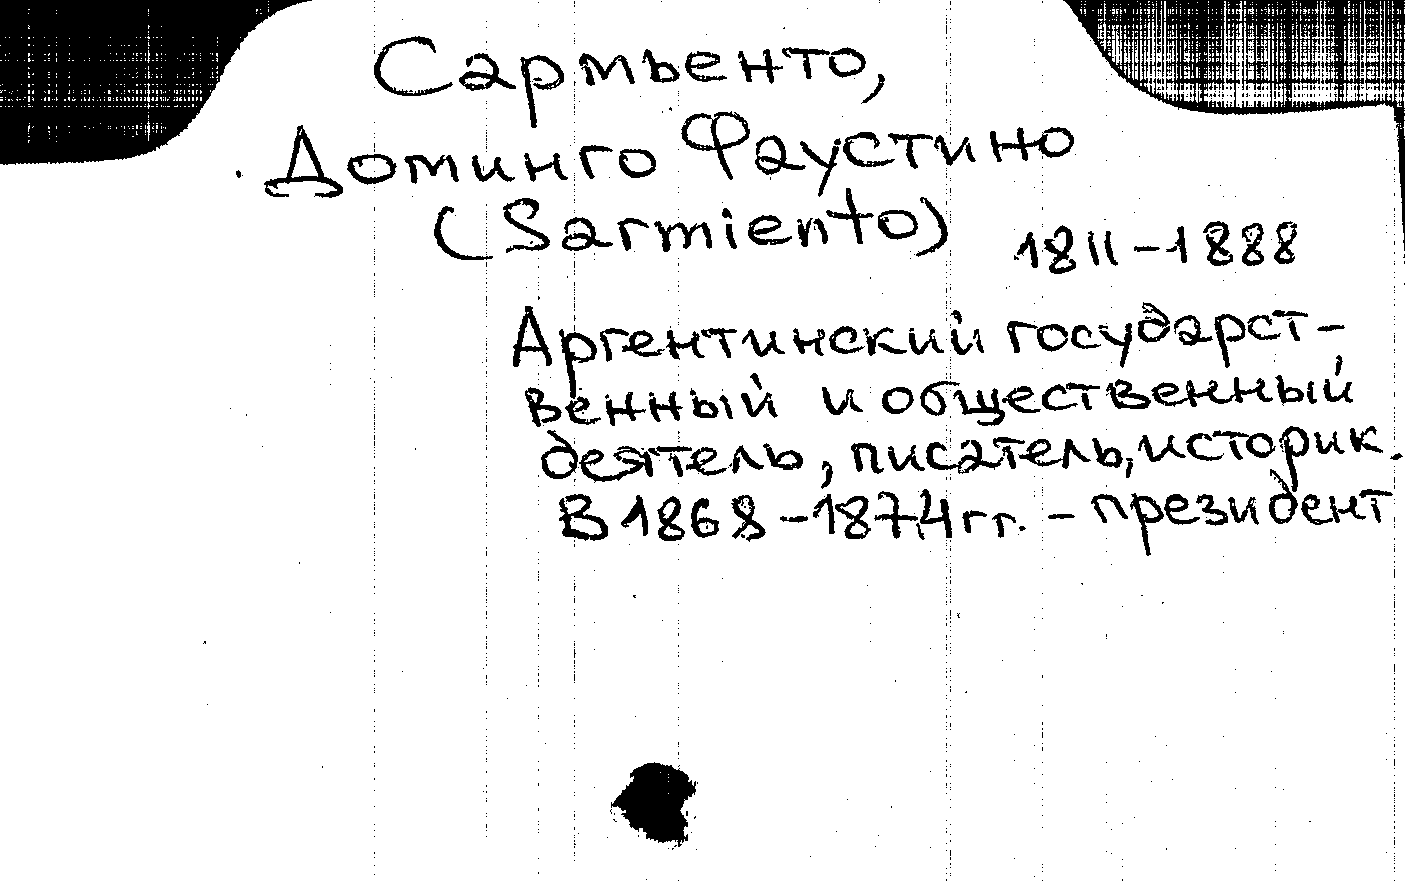 Сармьенто,
Доминго Фаустино
(Sarmiento) 1811-1888
Аргентинский государст-
венный и общественный
деятель, писатель, историк.
В 1868-1874 гг. - президент